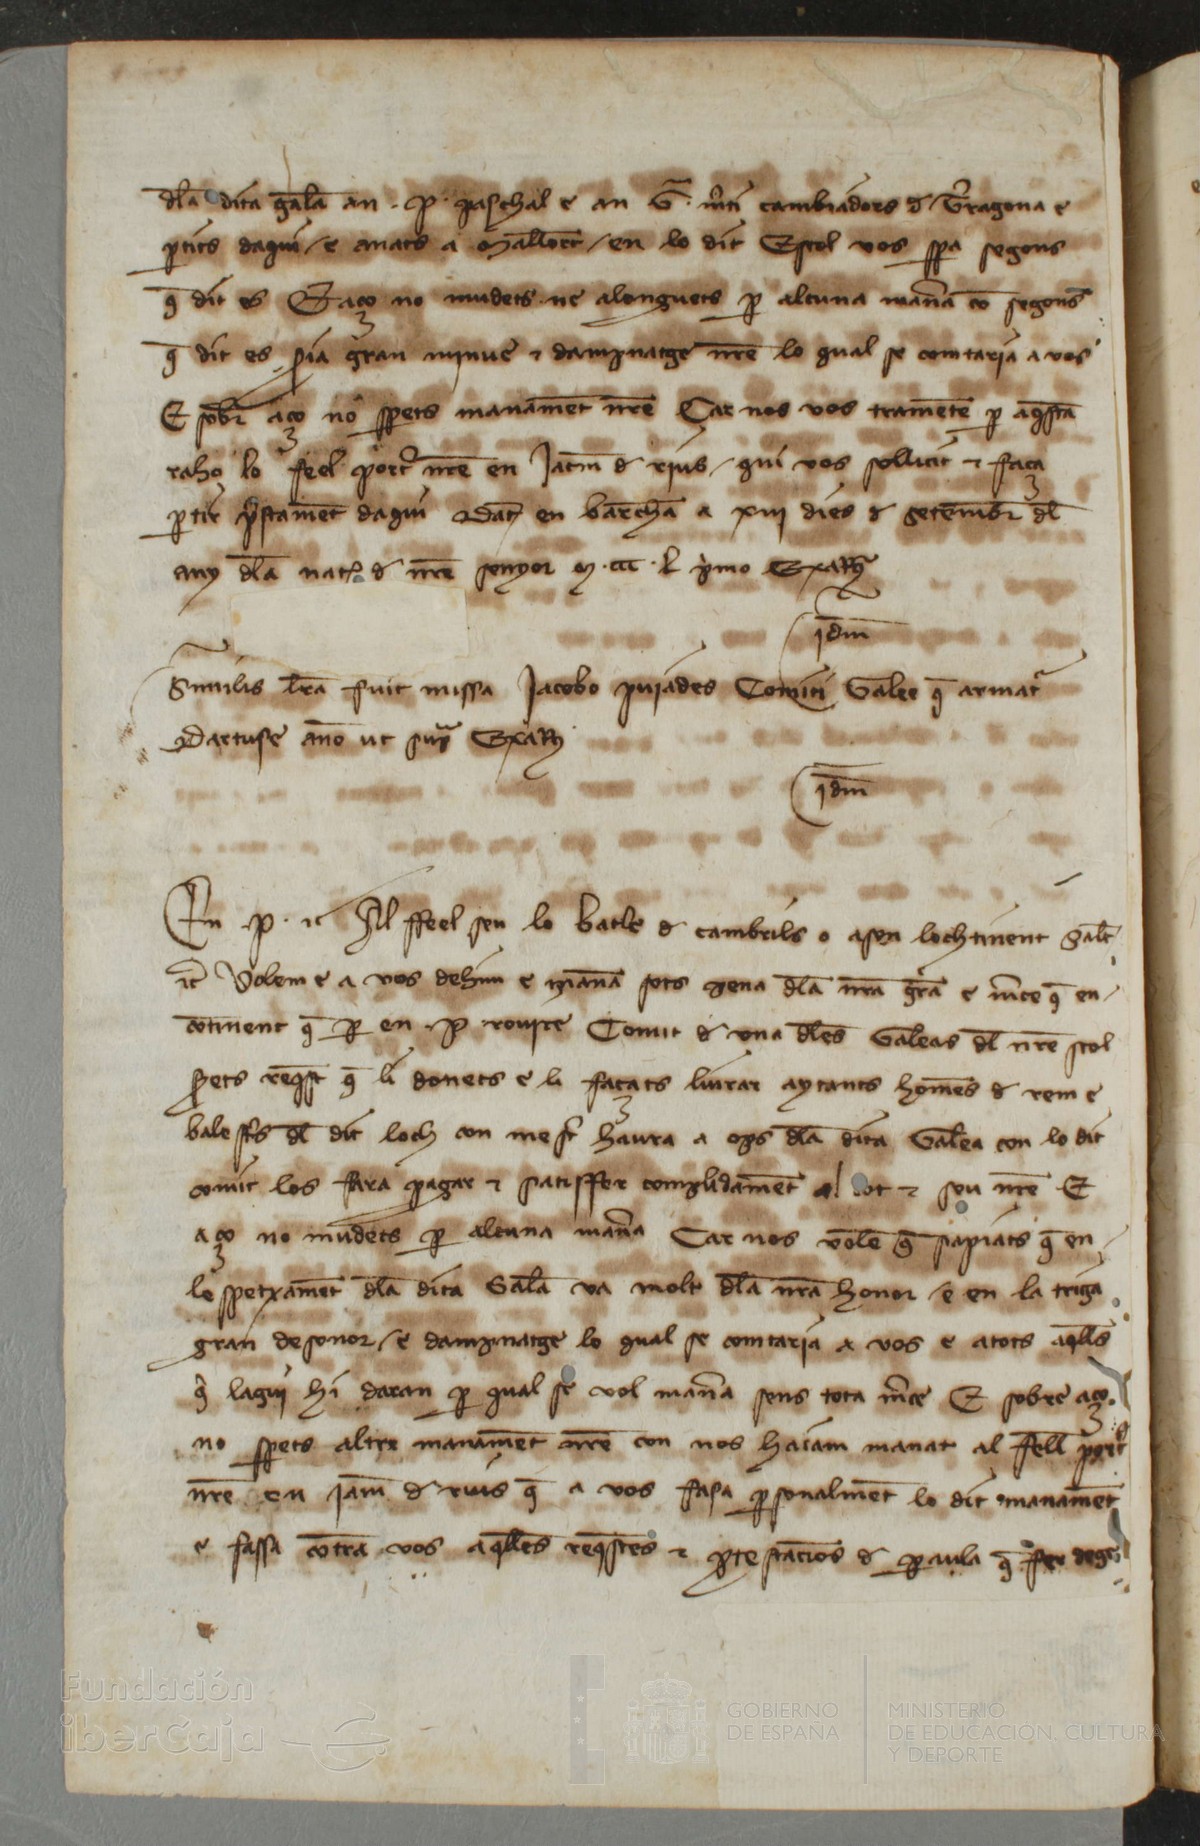 dla dita galea an · P · paschal e an G · mti cambiadors d Tragona e
ptits daqui / e anats a Mallorc / en lo dit Estol vos spa segons
q dit es E aço no mudets ne alonguets p alcuna mana co segons
q dit es sia gran minue & dampnatge nre lo qual se comtaria a vos
E sobr aço no spets manament nre Car nos vos tramete p aqsta
raho lo feel port nre en Jacm d rius / qui vos sollicit & faça
ptir pstament daqui Dat en barchna a xiii dies d setembr dl
any dla nat d nre senyor M · CCC · L pmo Exa R
idm
Similis lra fuit missa Jacobo pujades Comiti Galee q armat
Dartuse ano ut sup Exa R
idm
En · P · &c Al ffeel seu lo batle d cambrils o a son lochtinent Salt
&c Volem e a vos dehim e mana sots pena dla nra gra e mce q en
continent q p en · P · rovire Comit d una dles Galeas dl nre stol
sets reqst q li donets e li façats liurar aytants homes d rem e
balests dl dit loch con mest haura a ops dla dita Galea con lo dit
comit los fara pagar & satisffer compludament al sot & sou nre E
aço no mudets p alcuna mana Car nos vole q sapiats q en
lespetxament dla dita Galea va molt dla nra honor / e en la triga
gran desonor / e dampnatge lo qual se comtaria a vos e a tots aqlls
q lagui hi daran p qual se vol mana sens tota mce E sobre aço
no spets altre manament nre con nos haiam manat al ffell port
nre en Jacm d rius q a vos fasa psonalment lo dit manament
e fassa contra vos aqlles reqstes & ptestacions d paula q fer dege
Fundación
iberCaja
GOBIERNO
DE ESPAÑA
MINISTERIO
DE EDUCACIÓN, CULTURA
Y DEPORTE